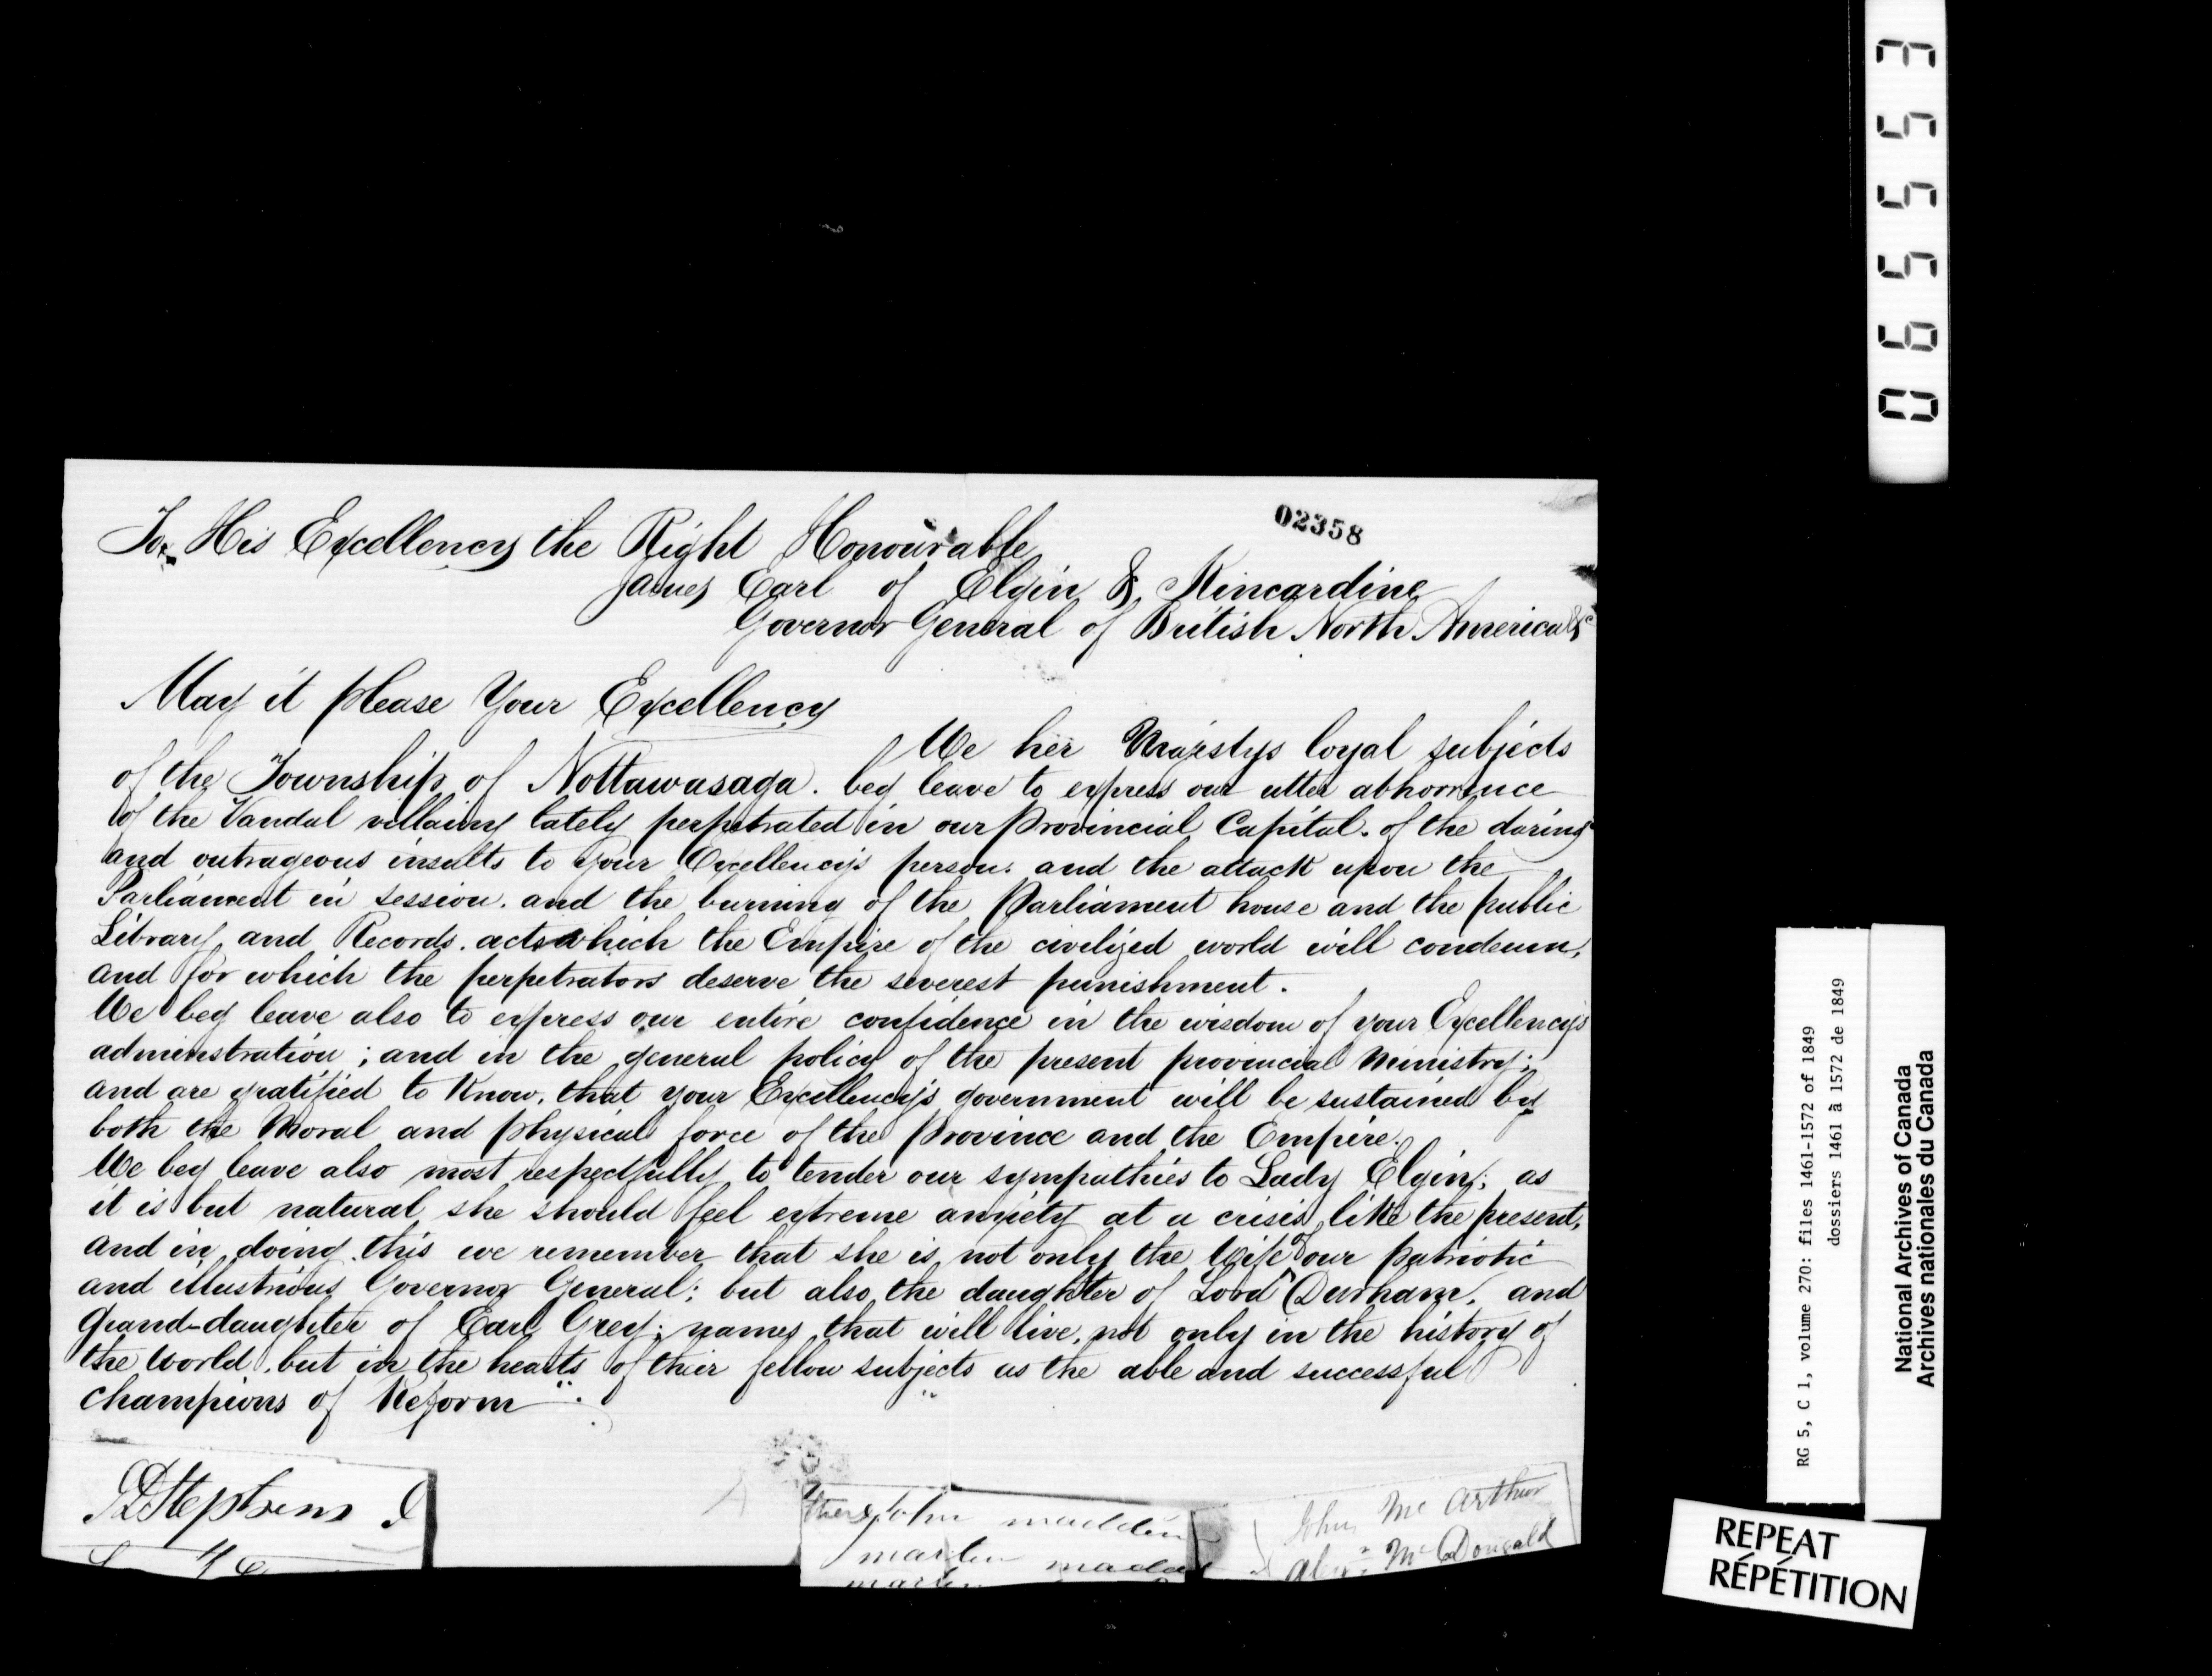 02358
To His Excellency the Right Honourable
James Earl of Elgin & Kincardine
Governor General of British North America &c
May it please Your Excellency
We her Majestys loyal subjects
of the Township of Nottawasaga. beg leave to express our utter abhorrence
of the Vandal villainy lately perpetrated in our Provincial Capital. of the daring
and outrageous insults to your Excellency's person. and the attack upon the
Parliament in session. and the burning of the Parliament house and the public
Library and Records. acts which the Empire of the civilized world will condemn,
and for which the perpetrators deserve the severest punishment.
We beg leave also to express our entire confidence in the wisdom of your Excellency's
administration; and in the general policy of the present provincial Ministry;
and are gratified to know, that your Excellency's government will be sustained by
both the Moral and physical force of the Province and the Empire.
We beg leave also most respectfully to tender our sympathies to Lady Elgin; as
it is but natural she should feel extreme anxiety at a crisis like the present,
and in doing this we remember that she is not only the Wife of our patriotic
and illustrious Governor General; but also the daughter of Lord Durham, and
Grand-daughter of Earl Grey; names that will live, not only in the history of
the World, but in the hearts of their fellow subjects as the able and successful
champions of Reform
Stephens
John madden
martin
John Mc Arthur
Alexr McDougald
063553
RG 5, C 1, volume 270: files 1461-1572 of 1849
dossiers 1461 à 1572 de 1849
National Archives of Canada
Archives nationales du Canada
REPEAT
RÉPÉTITION